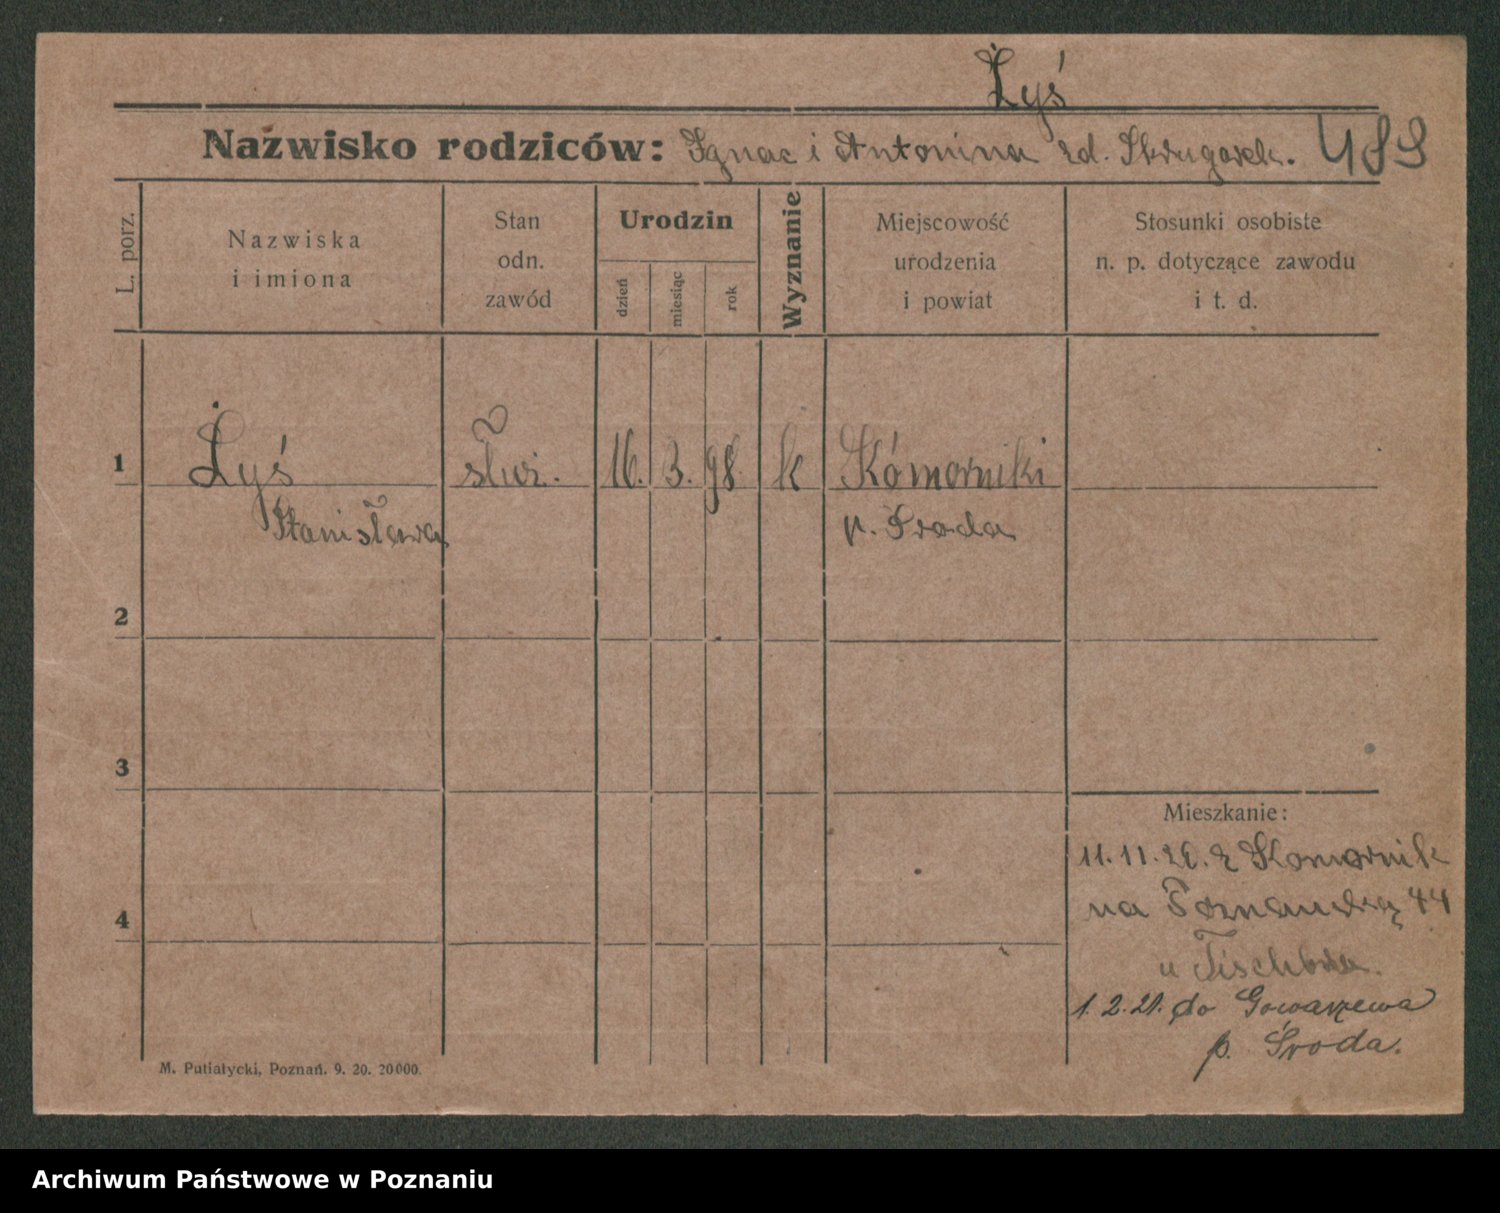 Łyś
Nazwisko rodziców: Ignac i Antonina zd. 489
L. porz.
Nazwiska
i imiona
Stan
odn.
zawód
Urodzin
dzień
miesiąc
rok
Wyznanie
Miejscowość
urodzenia
i powiat
Stosunki osobiste
n. p. dotyczące zawodu
i t. d.
1 Łyś służ. 16. 3. 98. k Komorniki
Stanisława p. Sroda
2
3
Mieszkanie:
11.11.20. z Komornik
4 na Poznańską 44
u
1.2.21. do Gowarzewa
p. Środa.
M. Putiatycki, Poznań. 9. 20. 20000.
Archiwum Państwowe w Poznaniu